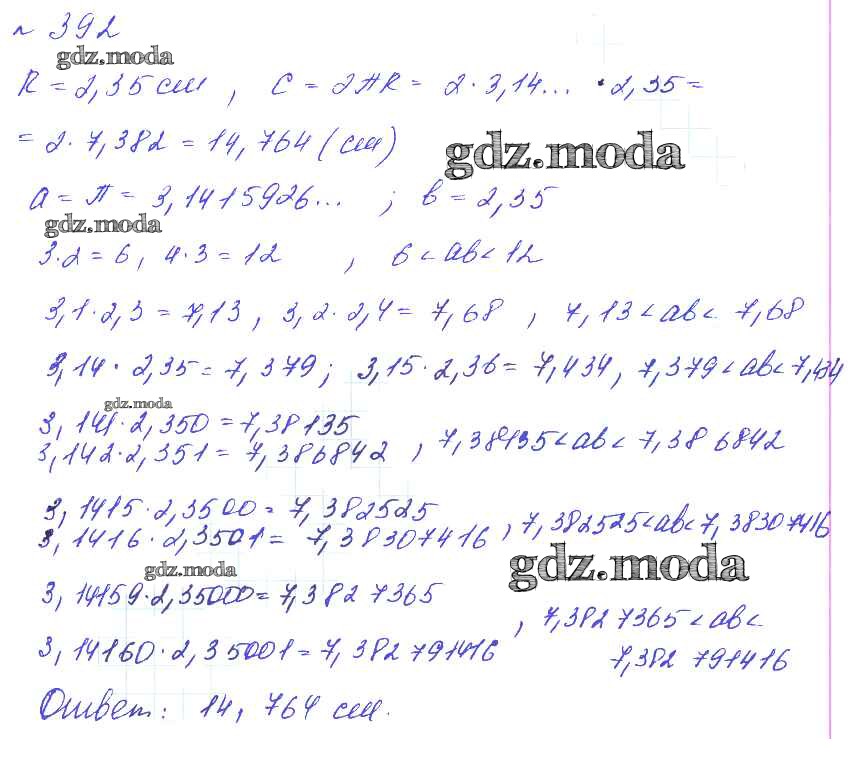 № 392
gdz.moda
R = 2,35 см , C = 2πR = 2 · 3,14... · 2,35 =
= 2 · 7,382 = 14,764 (см)
gdz.moda
a = π = 3,1415926... ; b = 2,35
gdz.moda
3·2 = 6, 4·3 = 12 , 6 < ab < 12
3,1 · 2,3 = 7,13 , 3,2 · 2,4 = 7,68 , 7,13 < ab < 7,68
3,14 · 2,35 = 7,379 ; 3,15 · 2,36 = 7,434 , 7,379 < ab < 7,434
gdz.moda
3,141 · 2,350 = 7,38135
3,142 · 2,351 = 7,386842 , 7,38135 < ab < 7,386842
3,1415 · 2,3500 = 7,382525
3,1416 · 2,3501 = 7,38307416 , 7,382525 < ab < 7,38307416
gdz.moda
gdz.moda
3,14159 · 2,35000 = 7,3827365
3,14160 · 2,35001 = 7,382791416 , 7,3827365 < ab <
7,382791416
Ответ: 14,764 см.